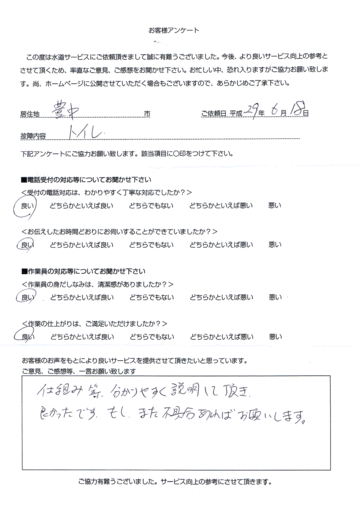 お客様アンケート
この度は水道サービスにご依頼頂きまして誠に有難うございました。今後、より良いサービス向上の参考と
させて頂くため、率直なご意見、ご感想をお聞かせ下さい。お忙しい中、恐れ入りますがご協力お願い致しま
す。尚、ホームページに公開させていただく場合もございますので、あらかじめご了承下さい。
居住地 豊中 市 ご依頼日 平成 29年 6月 18日
故障内容 トイレ
下記アンケートにご協力お願い致します。該当項目に〇印をつけて下さい。
■電話受付の対応等についてお聞かせ下さい
<受付の電話対応は、わかりやすく丁寧な対応でしたか?>
良い どちらかといえば良い どちらでもない どちらかといえば悪い 悪い
<お伝えしたお時間どおりにお伺いすることができていましたか?>
良い どちらかといえば良い どちらでもない どちらかといえば悪い 悪い
■作業員の対応等についてお聞かせ下さい
<作業員の身だしなみは、清潔感がありましたか?>
良い どちらかといえば良い どちらでもない どちらかといえば悪い 悪い
<作業の仕上がりは、ご満足いただけましたか?>
良い どちらかといえば良い どちらでもない どちらかといえば悪い 悪い
お客様のお声をもとにより良いサービスを提供させて頂きたいと思っています。
ご意見、ご感想等、一言お願い致します
仕組み等、分かりやすく説明して頂き、
良かったです。もし、また不具合あればお願いします。
ご協力有難うございました。サービス向上の参考にさせて頂きます。